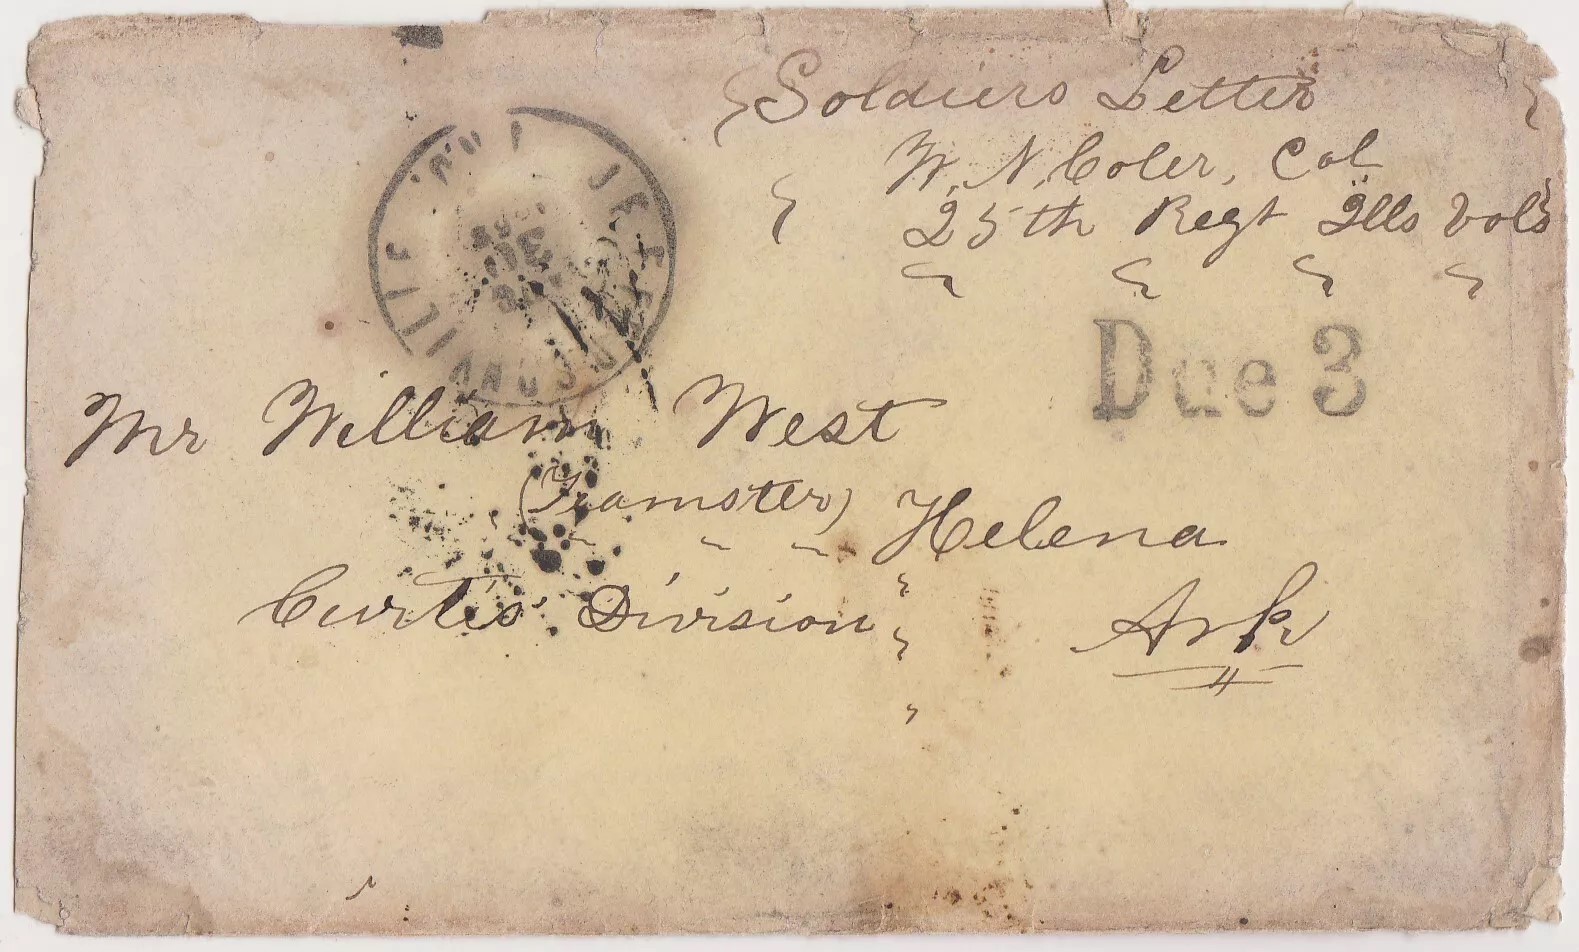 Soldiers Letter
W. N. Coler, Col
25th Regt Ills Vols
Due 3
JEFFERSONVILLE
Mr William West
(Teamster) Helena
Curtis' Division Ark